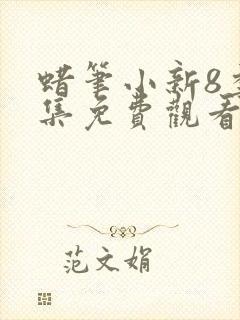 蜡筆小新8季
集免費觀看
范文娟